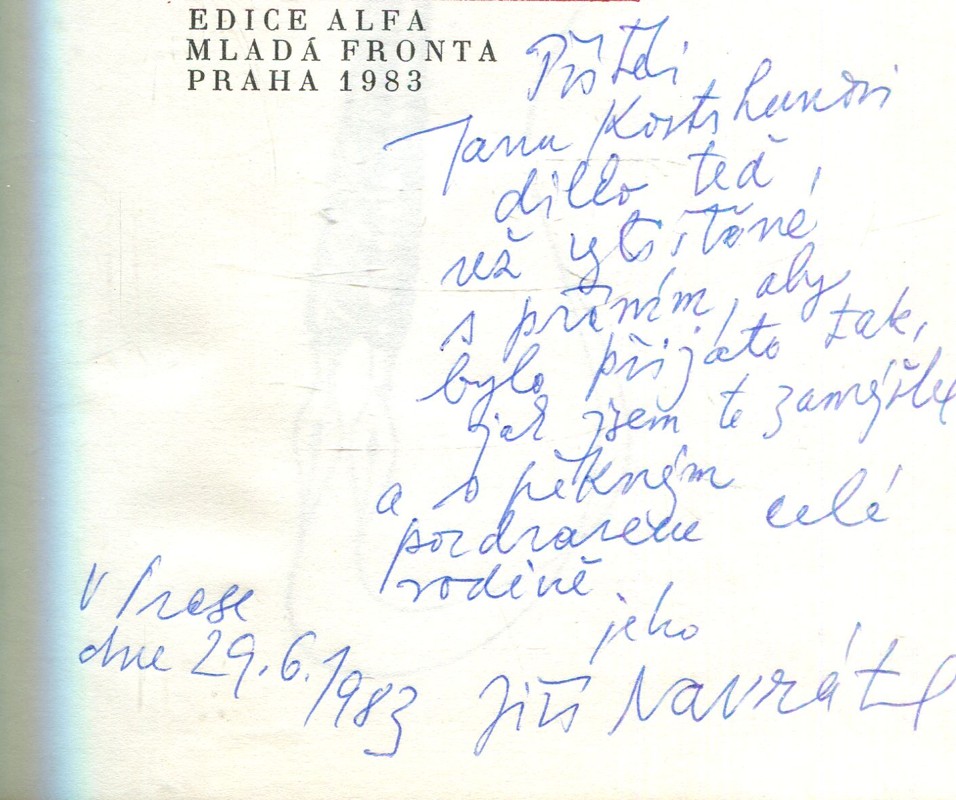 EDICE ALFA
MLADÁ FRONTA
PRAHA 1983
Příteli
Janu
dílko teď,
než vytištěné
s přáním, aby
bylo přijato tak,
jak jsem to zamýšlel
a s pěkným
pozdravem celé
rodině
jeho
Jiří Navrátil
V Praze
dne 29.6.1983